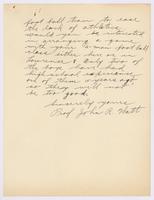 foot ball team to ease
the lack of athletics
would you be interested
in arranging a game
with your 6 man foot ball
class either here or in
Lawrence? Only two of
the boys have had
high school experience,
one of them 2 years ago
so they will not
be too good.
Sincerely yours
Prof John R. Natt